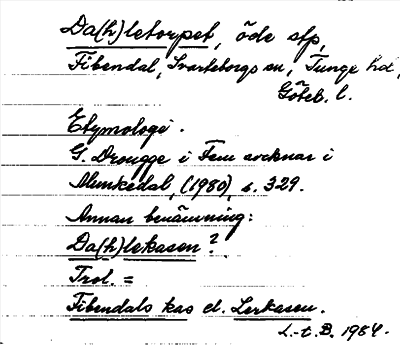 Da(h)letorpet, öde stp,
Fibendal, Svarteborgs sn, Tunge hd,
Göteb. l.
Etymologi.
G. Drougge i Fem socknar i
Munkedal, (1980), s. 329.
Annan benämning:
Da(h)lekasen?
Trol. =
Fibendals kas el. Lerkasen.
L-t. B. 1984.